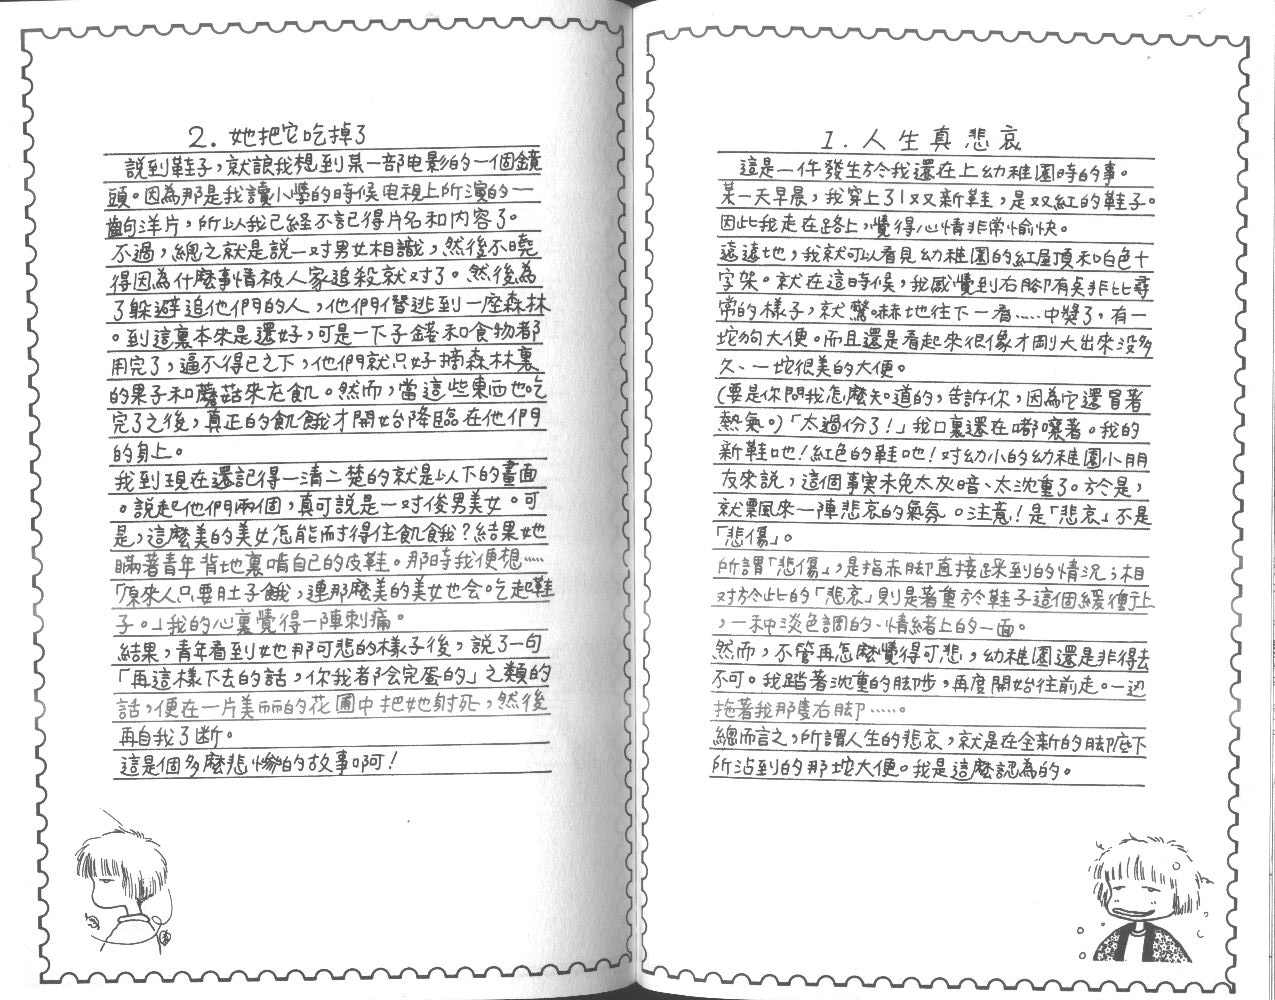 1.人生真悲哀
這是一件發生於我還在上幼稚園時的事。
某一天早晨，我穿上了1双新鞋，是双紅的鞋子。
因此我走在路上，覺得心情非常愉快。
遠遠地，我就可以看見幼稚園的紅屋頂和白色十
字架。就在這時候，我感覺到右腳有点非比尋
常的樣子，就驚嚇地往下一看……中獎了，有一
坨狗大便。而且還是看起來很像才剛大出來沒多
久、一坨很美的大便。
(要是你問我怎麼知道的，告訴你，因為它還冒著
熱氣。)「太過份了！」我口裏還在嘟嚷著。我的
新鞋吔！紅色的鞋吔！对幼小的幼稚園小朋
友來說，這個事実未免太灰暗、太沈重了。於是，
就飄來一陣悲哀的氣氛。注意！是「悲哀」不是
「悲傷」。
所謂「悲傷」，是指赤腳直接踩到的情況；相
对於此的「悲哀」則是著重於鞋子這個緩衝上
，一种淡色調的、情緒上的一面。
然而，不管再怎麼覺得可悲，幼稚園還是非得去
不可。我踏著沈重的腳步，再度開始往前走。一边
拖著我那隻右腳……。
總而言之，所謂人生的悲哀，就是在全新的腳底下
所沾到的那坨大便。我是這麼認為的。
2.她把它吃掉了
說到鞋子，就讓我想到某一部电影的一個鏡
頭。因為那是我讀小學的時候电視上所演的一
齣洋片，所以我已經不記得片名和内容了。
不過，總之就是説一对男女相識，然後不曉
得因為什麼事情被人家追殺就对了。然後為
了躲避追他們的人，他們偺逃到一座森林
。到這裏本來是還好，可是一下子錢和食物都
用完了，逼不得已之下，他們就只好摘森林裏
的果子和蘑菇來充飢。然而，當這些東西也吃
完了之後，真正的飢餓才開始降臨在他們
的身上。
我到現在還記得一清二楚的就是以下的畫面
。説起他們兩個，真可説是一对俊男美女。可
是，這麼美的美女怎能耐得住飢餓？結果她
瞞著青年背地裏啃自己的皮鞋。那時我便想……
「原來人只要肚子餓，連那麼美的美女也会吃起鞋
子。」我的心裏覺得一陣刺痛。
結果，青年看到她那可悲的樣子後，説了一句
「再這樣下去的話，你我都会完蛋的」之類的
話，便在一片美麗的花圃中把她射死，然後
再自我了断。
這是個多麼悲慘的故事啊！